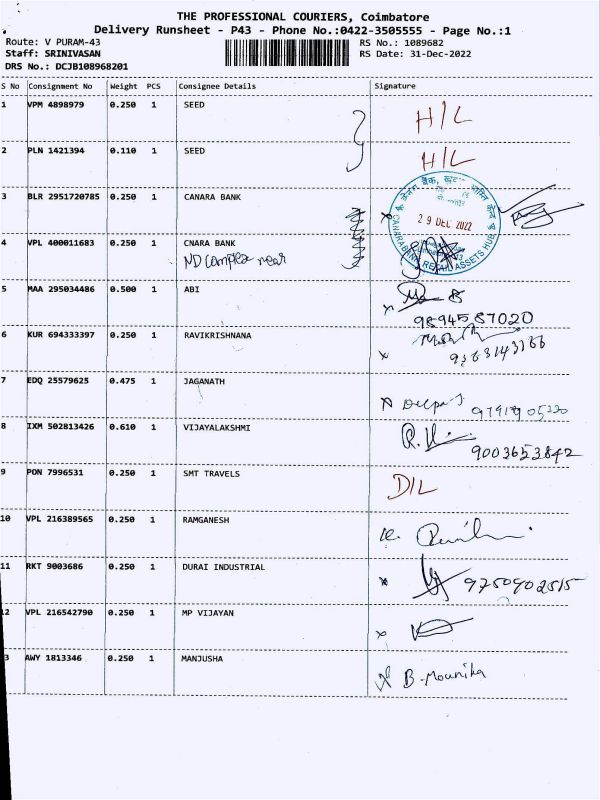 THE PROFESSIONAL COURIERS, Coimbatore
Delivery Runsheet - P43 - Phone No.:0422-3505555 - Page No.:1
Route: V PURAM-43 RS No.: 1089682
Staff: SRINIVASAN RS Date: 31-Dec-2022
DRS No.: DCJB108968201
S No Consignment No Weight PCS Consignee Details Signature
1 VPM 4898979 0.250 1 SEED H/L
2 PLN 1421394 0.110 1 SEED H/L
3 BLR 2951720785 0.250 1 CANARA BANK
29 DEC 2022
CANARA BANK RETAIL ASSETS HUB
4 VPL 400011683 0.250 1 CNARA BANK
MD Complex near
5 MAA 295034486 0.500 1 ABI
9894587020
6 KUR 694333397 0.250 1 RAVIKRISHNANA
9363143166
7 EDQ 25579625 0.475 1 JAGANATH
Deepa
8 IXM 502813426 0.610 1 VIJAYALAKSHMI
9003653842
9 PON 7996531 0.250 1 SMT TRAVELS D/L
10 VPL 216389565 0.250 1 RAMGANESH
11 RKT 9003686 0.250 1 DURAI INDUSTRIAL
9750902515
2 VPL 216542790 0.250 1 MP VIJAYAN
3 AWY 1813346 0.250 1 MANJUSHA B. Mounika